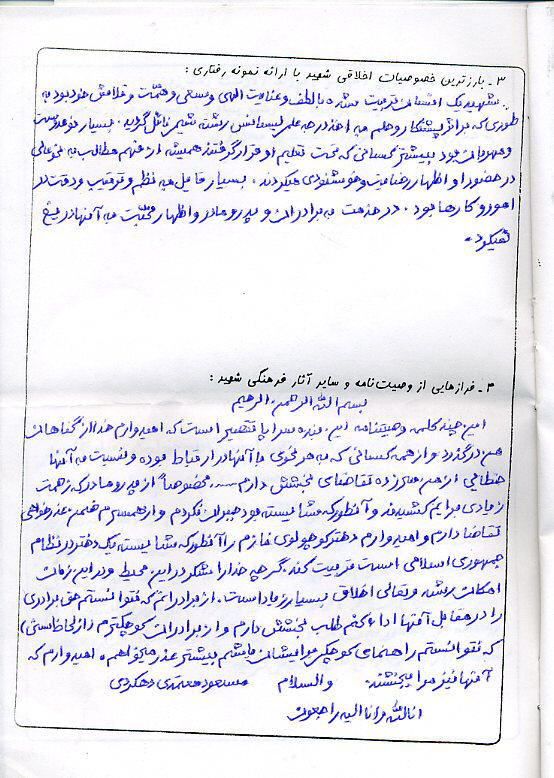 ۳ - بارزترین خصوصیات اخلاقی شهید با ارائه نمونه رفتاری :
شهید یک انسان تربیت شده با لطف و عنایت الهی و سعی و همت و تلاش خود بود به
طوری که براثر پشتکار و علم به اخذ درجه علمی لیسانس رشته شیمی نائل گردید. بسیار خوددوست
و مهربان بود بیشتر کسانی که تحت تعلیم او قرار گرفتند همیشه از فهم مطالب به نحو عالی
در حضور او اظهار رضایت و خوشنودی میکردند. بسیار قایل به نظم و ترتیب و دقت در
امور و کارها بود. در خدمت به برادران و پدر و مادر و اظهار محبت به آنها دریغ
نمیکرد.
۴ - فرازهایی از وصیت نامه و سایر آثار فرهنگی شهید :
بسم الله الرحمن الرحیم
این چند کلمه وصیتنامه این بنده سراپا تقصیر است که امیدوارم خدا از گناهان
من درگذرد و از همه کسانی که به هر نحوی با آنها در ارتباط بوده و نسبت به آنها
خطائی از من سرزده تقاضای بخشش دارم ... مخصوصاً از پدر و مادر که زحمت
زیادی برایم کشیدند و آنطور که شایسته بود جبران نکردم و از همسرم ضمن عذرخواهی
تقاضا دارم و امیدوارم دختر کوچولوی نازم را آنطور که شایسته یک دختر در نظام
جمهوری اسلامی است تربیت کند. گرچه خدا را شکر در این محیط و در این زمان
امکان رشد و تعالی اخلاق بسیار زیاد است. از برادرانم که نتوانستم حق برادری
را در مقابل آنها اداء کنم طلب بخشش دارم و از برادران کوچکترم (از لحاظ سنی)
که نتوانستم راهنمای کوچکی برایشان باشم بیشتر عذر میخواهم. امیدوارم که
آنها نیز مرا ببخشند. والسلام مسعود معتمدی دهکردی
انا لله و انا الیه راجعون